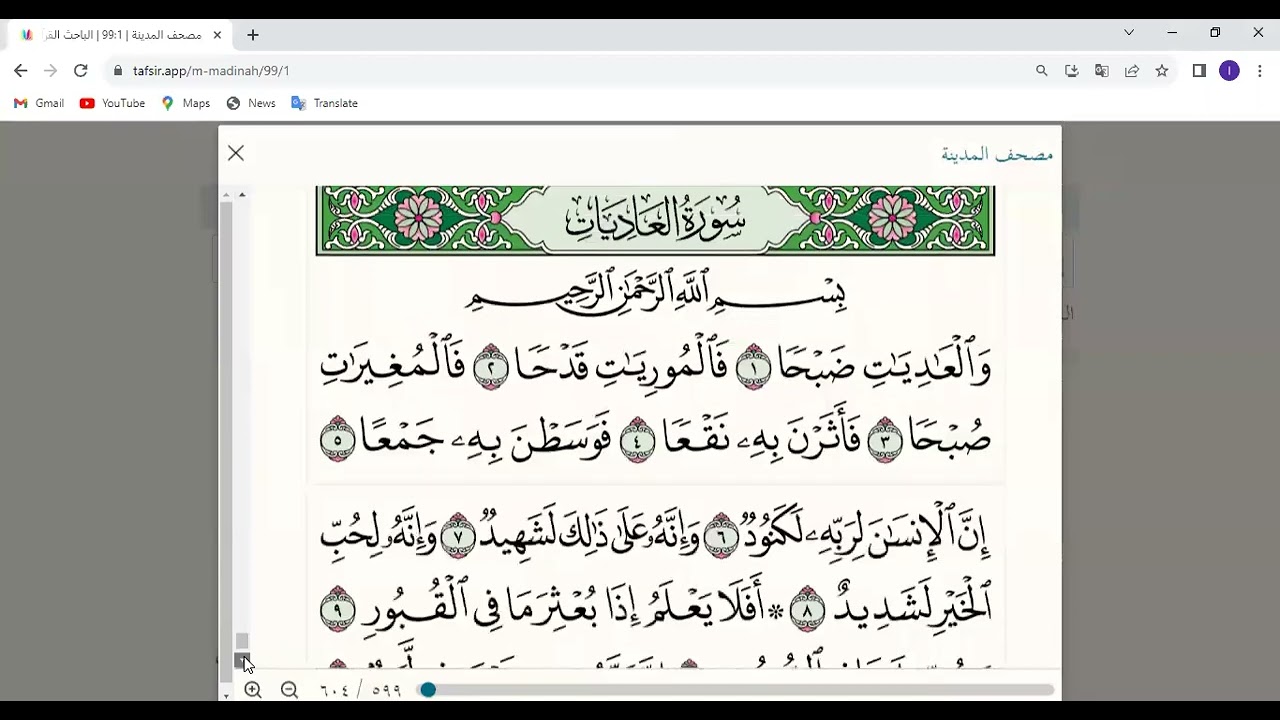 مصحف المدينة | 99:1 | الباحث القر
tafsir.app/m-madinah/99/1
I
Gmail YouTube Maps News Translate
مصحف المدينة
سُورَةُ العَادِيَاتِ
بِسْمِ ٱللَّهِ ٱلرَّحْمَٰنِ ٱلرَّحِيمِ
وَٱلْعَٰدِيَٰتِ ضَبْحًا ١ فَٱلْمُورِيَٰتِ قَدْحًا ٢ فَٱلْمُغِيرَٰتِ
صُبْحًا ٣ فَأَثَرْنَ بِهِۦ نَقْعًا ٤ فَوَسَطْنَ بِهِۦ جَمْعًا ٥
إِنَّ ٱلْإِنسَٰنَ لِرَبِّهِۦ لَكَنُودٌ ٦ وَإِنَّهُۥ عَلَىٰ ذَٰلِكَ لَشَهِيدٌ ٧ وَإِنَّهُۥ لِحُبِّ
ٱلْخَيْرِ لَشَدِيدٌ ٨ * أَفَلَا يَعْلَمُ إِذَا بُعْثِرَ مَا فِى ٱلْقُبُورِ ٩
٥٩٩ / ٦٠٤